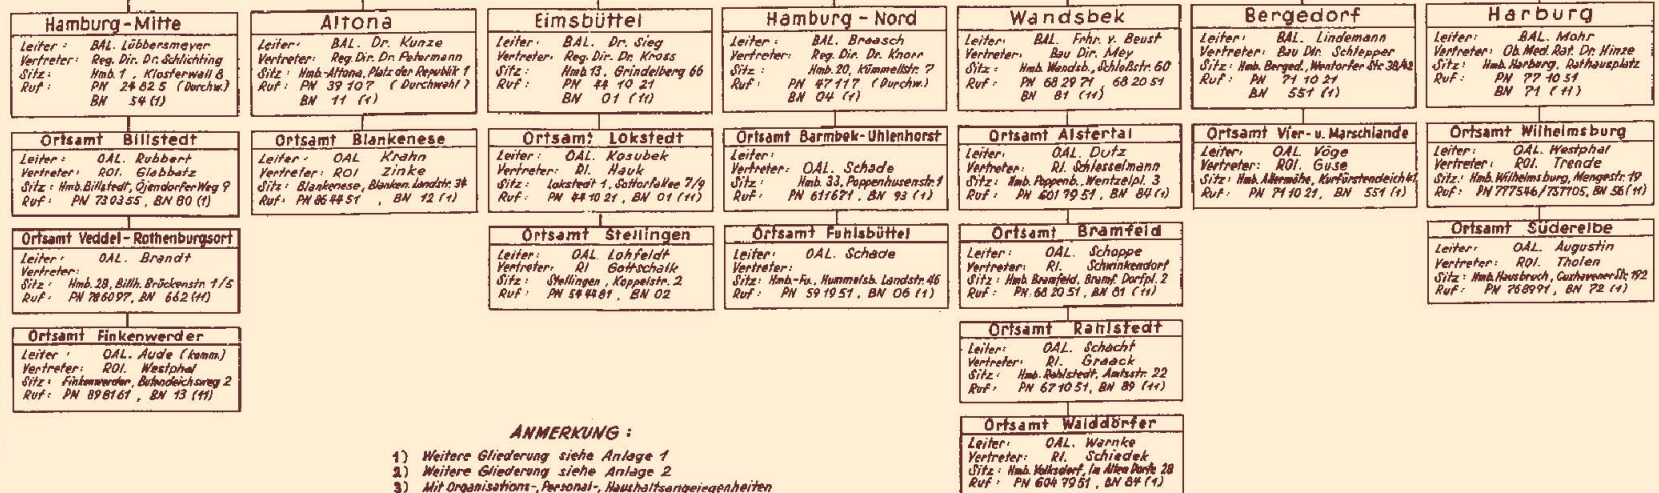 Hamburg-Mitte
Leiter: BAL. Löbbersmeyer
Vertreter: Reg. Dir. Dr. Schlichting
Sitz: Hmb. 1, Klosterwall 8
Ruf: PN 24825 (Durchw.)
BN 54 (1)
Ortsamt Billstedt
Leiter: OAL. Rubbert
Vertreter: ROI. Glabbatz
Sitz: Hmb. Billstedt, Öjendorfer Weg 9
Ruf: PN 730355, BN 80 (1)
Ortsamt Veddel-Rothenburgsort
Leiter: OAL. Brandt
Vertreter:
Sitz: Hmb. 28, Billh. Brückenstr. 1/5
Ruf: PN 786097, BN 662 (11)
Ortsamt Finkenwerder
Leiter: OAL. Aude (komm.)
Vertreter: ROI. Westphal
Sitz: Finkenwerder, Butendeichsweg 2
Ruf: PN 898161, BN 13 (11)
Altona
Leiter: BAL. Dr. Kunze
Vertreter: Reg. Dir. Dr. Petermann
Sitz: Hmb-Altona, Platz der Republik 1
Ruf: PN 39107 (Durchwahl)
BN 11 (1)
Ortsamt Blankenese
Leiter: OAL Krahn
Vertreter: ROI Zinke
Sitz: Blankenese, Blanken. Landstr. 34
Ruf: PN 86 44 51, BN 12 (1)
Eimsbüttel
Leiter: BAL. Dr. Sieg
Vertreter: Reg. Dir. Dr. Kross
Sitz: Hmb 13, Grindelberg 66
Ruf: PN 44 10 21
BN 01 (11)
Ortsamt Lokstedt
Leiter: OAL. Kosubek
Vertreter: RI. Hauk
Sitz: Lokstedt 1, Sottorfallee 7/9
Ruf: PN 441021, BN 01 (11)
Ortsamt Stellingen
Leiter: OAL Lohfeldt
Vertreter: RI Gottschalk
Sitz: Stellingen, Koppelstr. 2
Ruf: PN 544481, BN 02
Hamburg-Nord
Leiter: BAL. Braasch
Vertreter: Reg. Dir. Dr. Knorr
Sitz: Hmb. 20, Kümmellstr. 7
Ruf: PN 47117 (Durchw.)
BN 04 (1)
Ortsamt Barmbek-Uhlenhorst
Leiter:
Vertreter: OAL. Schade
Sitz: Hmb. 33, Poppenhusenstr. 1
Ruf: PN 611671, BN 93 (1)
Ortsamt Fuhlsbüttel
Leiter: OAL. Schade
Vertreter:
Sitz: Hmb.-Fu., Hummelsb. Landstr. 46
Ruf: PN 591951, BN 06 (1)
Wandsbek
Leiter: BAL. Frhr. v. Beust
Vertreter: Bau Dir. Mey
Sitz: Hmb. Wandsb., Schloßstr. 60
Ruf: PN 68 29 71, 68 20 51
BN 81 (11)
Ortsamt Alstertal
Leiter: OAL. Dutz
Vertreter: RI. Schlesselmann
Sitz: Hmb. Poppenb., Wentzelpl. 3
Ruf: PN 601 79 51, BN 84 (1)
Ortsamt Bramfeld
Leiter: OAL. Schoppe
Vertreter: RI. Schwinkendorf
Sitz: Hmb. Bramfeld, Bramf. Dorfpl. 2
Ruf: PN 68 20 51, BN 81 (11)
Ortsamt Rahlstedt
Leiter: OAL. Schacht
Vertreter: RI. Graack
Sitz: Hmb. Rahlstedt, Amtsstr. 22
Ruf: PN 671051, BN 89 (11)
Ortsamt Walddörfer
Leiter: OAL. Warnke
Vertreter: RI. Schiedek
Sitz: Hmb. Volksdorf, Im Alten Dorfe 28
Ruf: PN 604 7951, BN 84 (1)
Bergedorf
Leiter: BAL. Lindemann
Vertreter: Bau Dir. Schlepper
Sitz: Hmb. Berged., Wentorfer Str. 38/42
Ruf: PN 71 10 21
BN 551 (1)
Ortsamt Vier- u. Marschlande
Leiter: OAL. Vöge
Vertreter: ROI. Guse
Sitz: Hmb. Allermöhe, Kurfürstendeich 41
Ruf: PN 711021, BN 551 (1)
Harburg
Leiter: BAL. Mohr
Vertreter: Ob. Med. Rat. Dr. Hinze
Sitz: Hmb. Harburg, Rathausplatz
Ruf: PN 77 10 51
BN 71 (11)
Ortsamt Wilhelmsburg
Leiter: OAL. Westphal
Vertreter: ROI. Trende
Sitz: Hmb. Wilhelmsburg, Mengestr. 19
Ruf: PN 777546/757105, BN 56 (11)
Ortsamt Süderelbe
Leiter: OAL. Augustin
Vertreter: ROI. Tholen
Sitz: Hmb. Hausbruch, Cuxhavener Str. 192
Ruf: PN 768991, BN 72 (1)
ANMERKUNG:
1) Weitere Gliederung siehe Anlage 1
2) Weitere Gliederung siehe Anlage 2
3) Mit Organisations-, Personal-, Haushaltsangelegenheiten